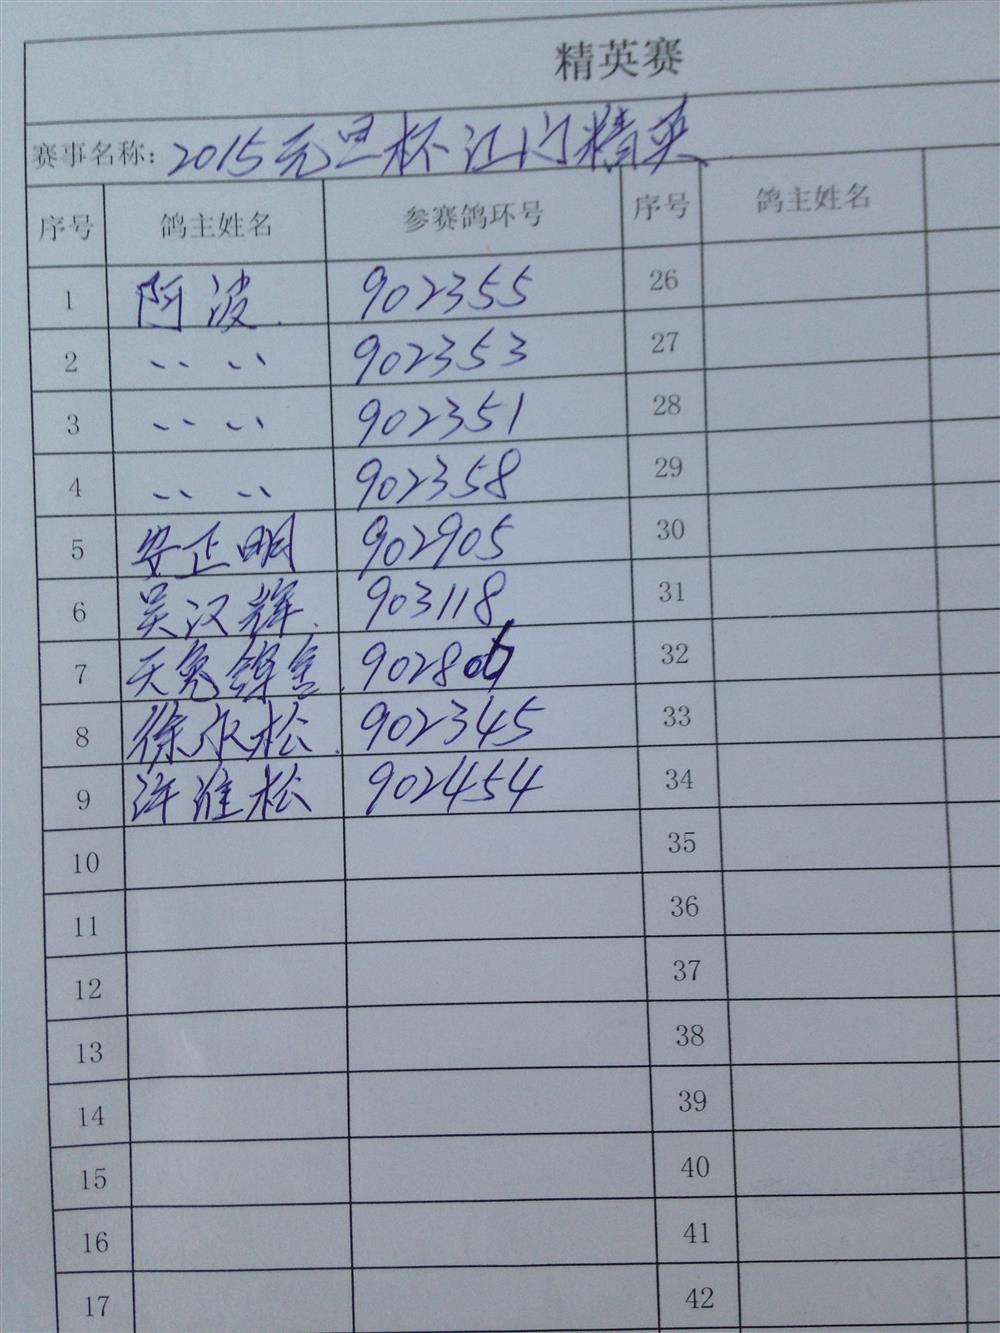 精英赛
赛事名称: 2015元旦杯江门精英
序号 鸽主姓名 参赛鸽环号 序号 鸽主姓名
1 阿波. 902355 26
2 、、 、、 902353 27
3 、、 、、 902351 28
4 、、 、、 902358 29
5 安正明 902905 30
6 吴汉辉. 903118 31
7 902806 32
8 徐永松. 902345 33
9 许淮松 902454 34
10 35
11 36
12 37
13 38
14 39
15 40
16 41
17 42